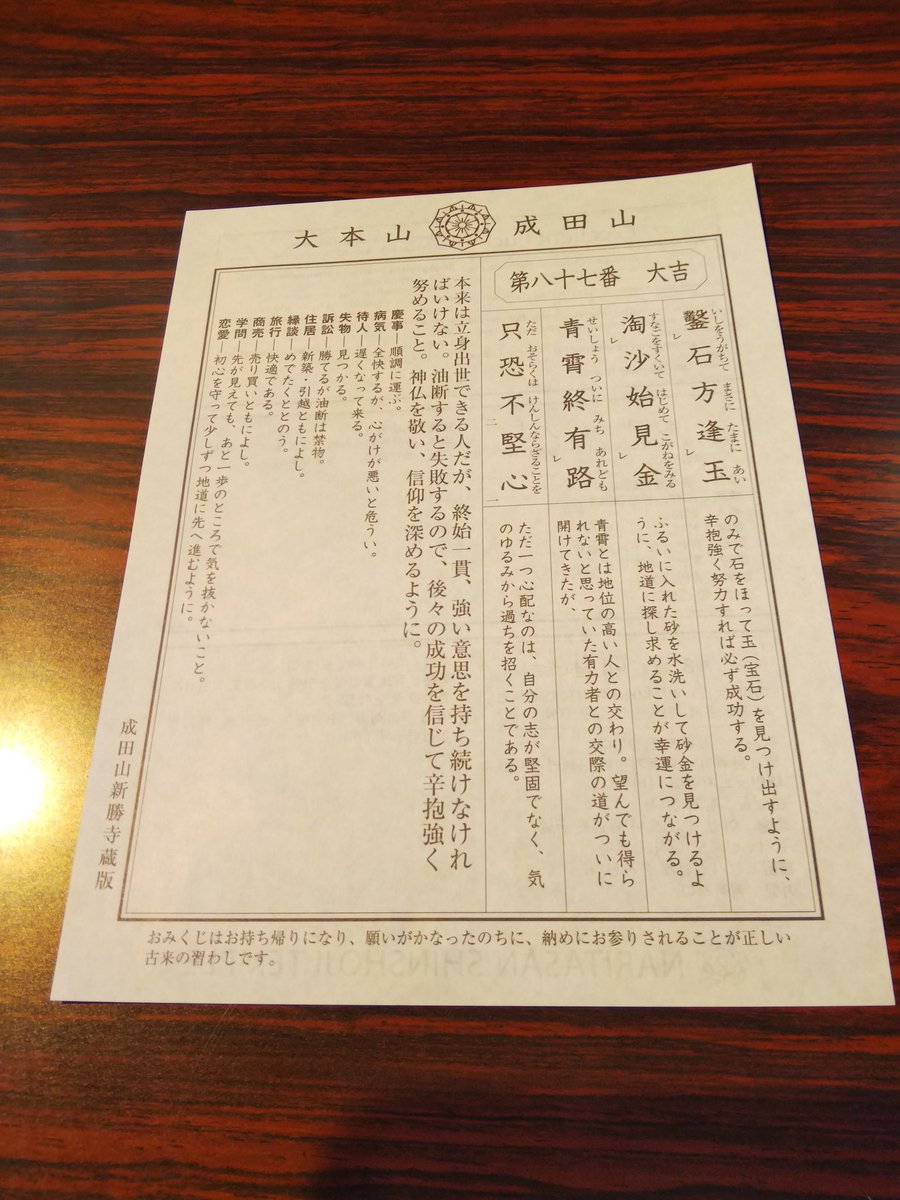 大本山 成田山
第八十七番 大吉
鑿石方逢玉
いしをうがちて まさに たまに あい
レ
レ
淘沙始見金
すなごをすくいて はじめて こがねをみる
レ
レ
青霄終有路
せいしょう ついに みち あれども
レ
只恐不堅心
ただ おそらくは けんしんならざることを
二
一
のみで石をほって玉(宝石)を見つけ出すように、
辛抱強く努力すれば必ず成功する。
ふるいに入れた砂を水洗いして砂金を見つけるよ
うに、地道に探し求めることが幸運につながる。
青霄とは地位の高い人との交わり。望んでも得ら
れないと思っていた有力者との交際の道がついに
開けてきたが、
ただ一つ心配なのは、自分の志が堅固でなく、気
のゆるみから過ちを招くことである。
本来は立身出世できる人だが、終始一貫、強い意思を持ち続けなけれ
ばいけない。油断すると失敗するので、後々の成功を信じて辛抱強く
努めること。神仏を敬い、信仰を深めるように。
慶事―順調に運ぶ。
病気―全快するが、心がけが悪いと危うい。
待人―遅くなって来る。
失物―見つかる。
訴訟―勝てるが油断は禁物。
住居―新築・引越ともによし。
縁談―めでたくととのう。
旅行―快適である。
商売―売り買いともによし。
学問―先が見えても、あと一歩のところで気を抜かないこと。
恋愛―初心を守って少しずつ地道に先へ進むように。
成田山新勝寺蔵版
おみくじはお持ち帰りになり、願いがかなったのちに、納めにお参りされることが正しい
古来の習わしです。